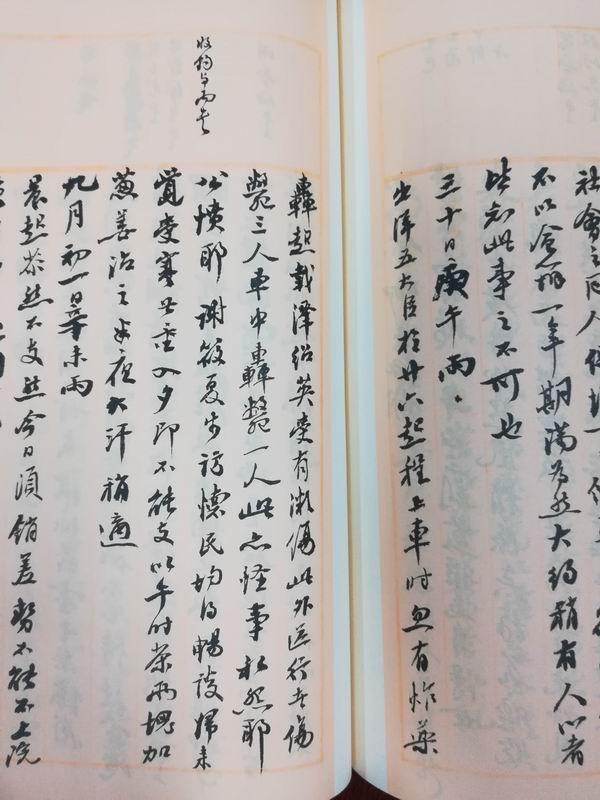 社會之同人
不以一年期滿為然大約稍有人心者
皆知此事之不可也
三十日庚午雨
出洋五大臣於廿六起程上車時忽有炸藥
轟起載澤紹英受有微傷此外送行者傷
斃三人車中轟斃一人此亦怪事私怨耶
公憤耶謝敬夏步訪懷民均得暢談歸來
覺受寒甚重入夕即不能支以午時茶兩塊加
蔥姜治之半夜大汗稍適
九月初一日辛未雨
晨起苶然不支然今日須銷差勢不能不上院